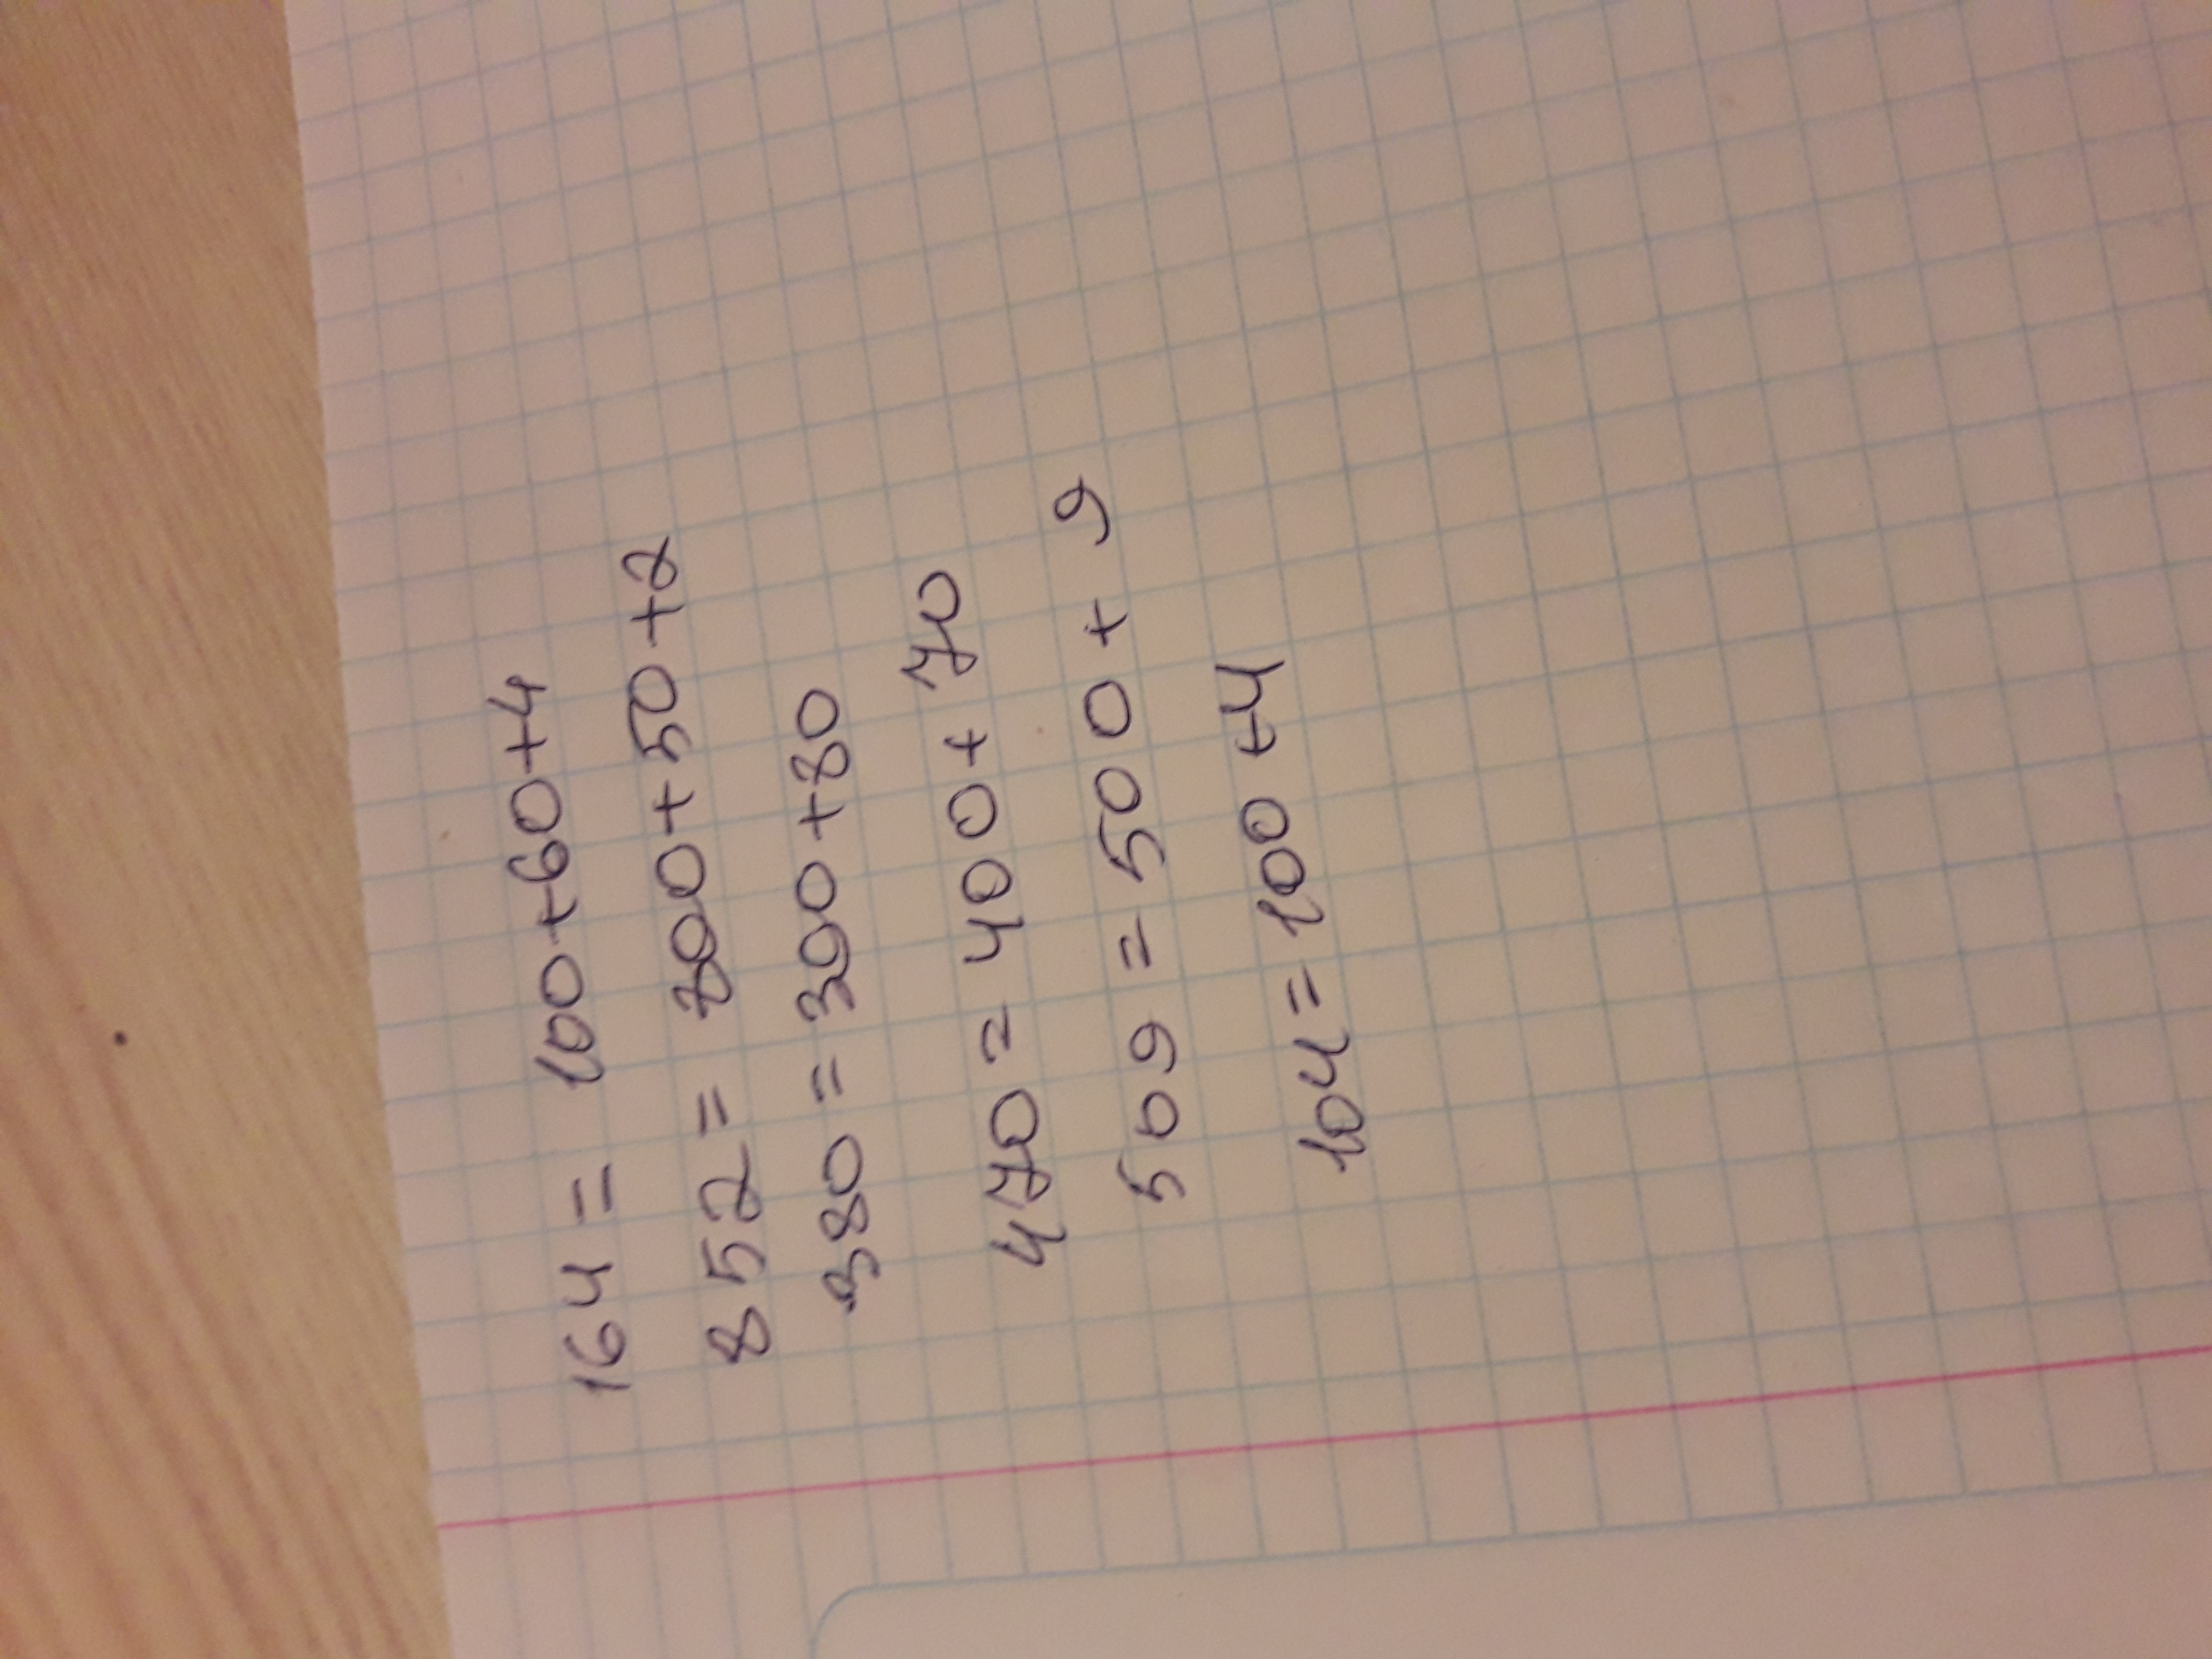 164 = 100+60+4
852 = 800+50+2
380 = 300+80
470 = 400+70
509 = 500+9
104 = 100+4